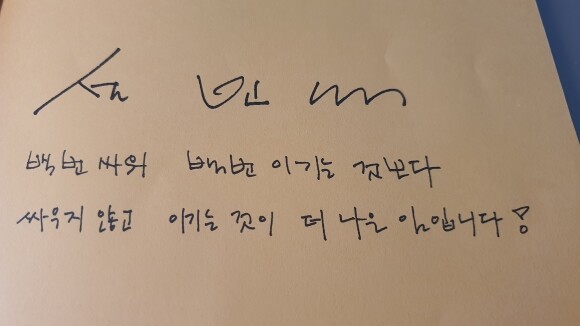 백번 싸워 백번 이기는 것보다
싸우지 않고 이기는 것이 더 나은 임입니다!